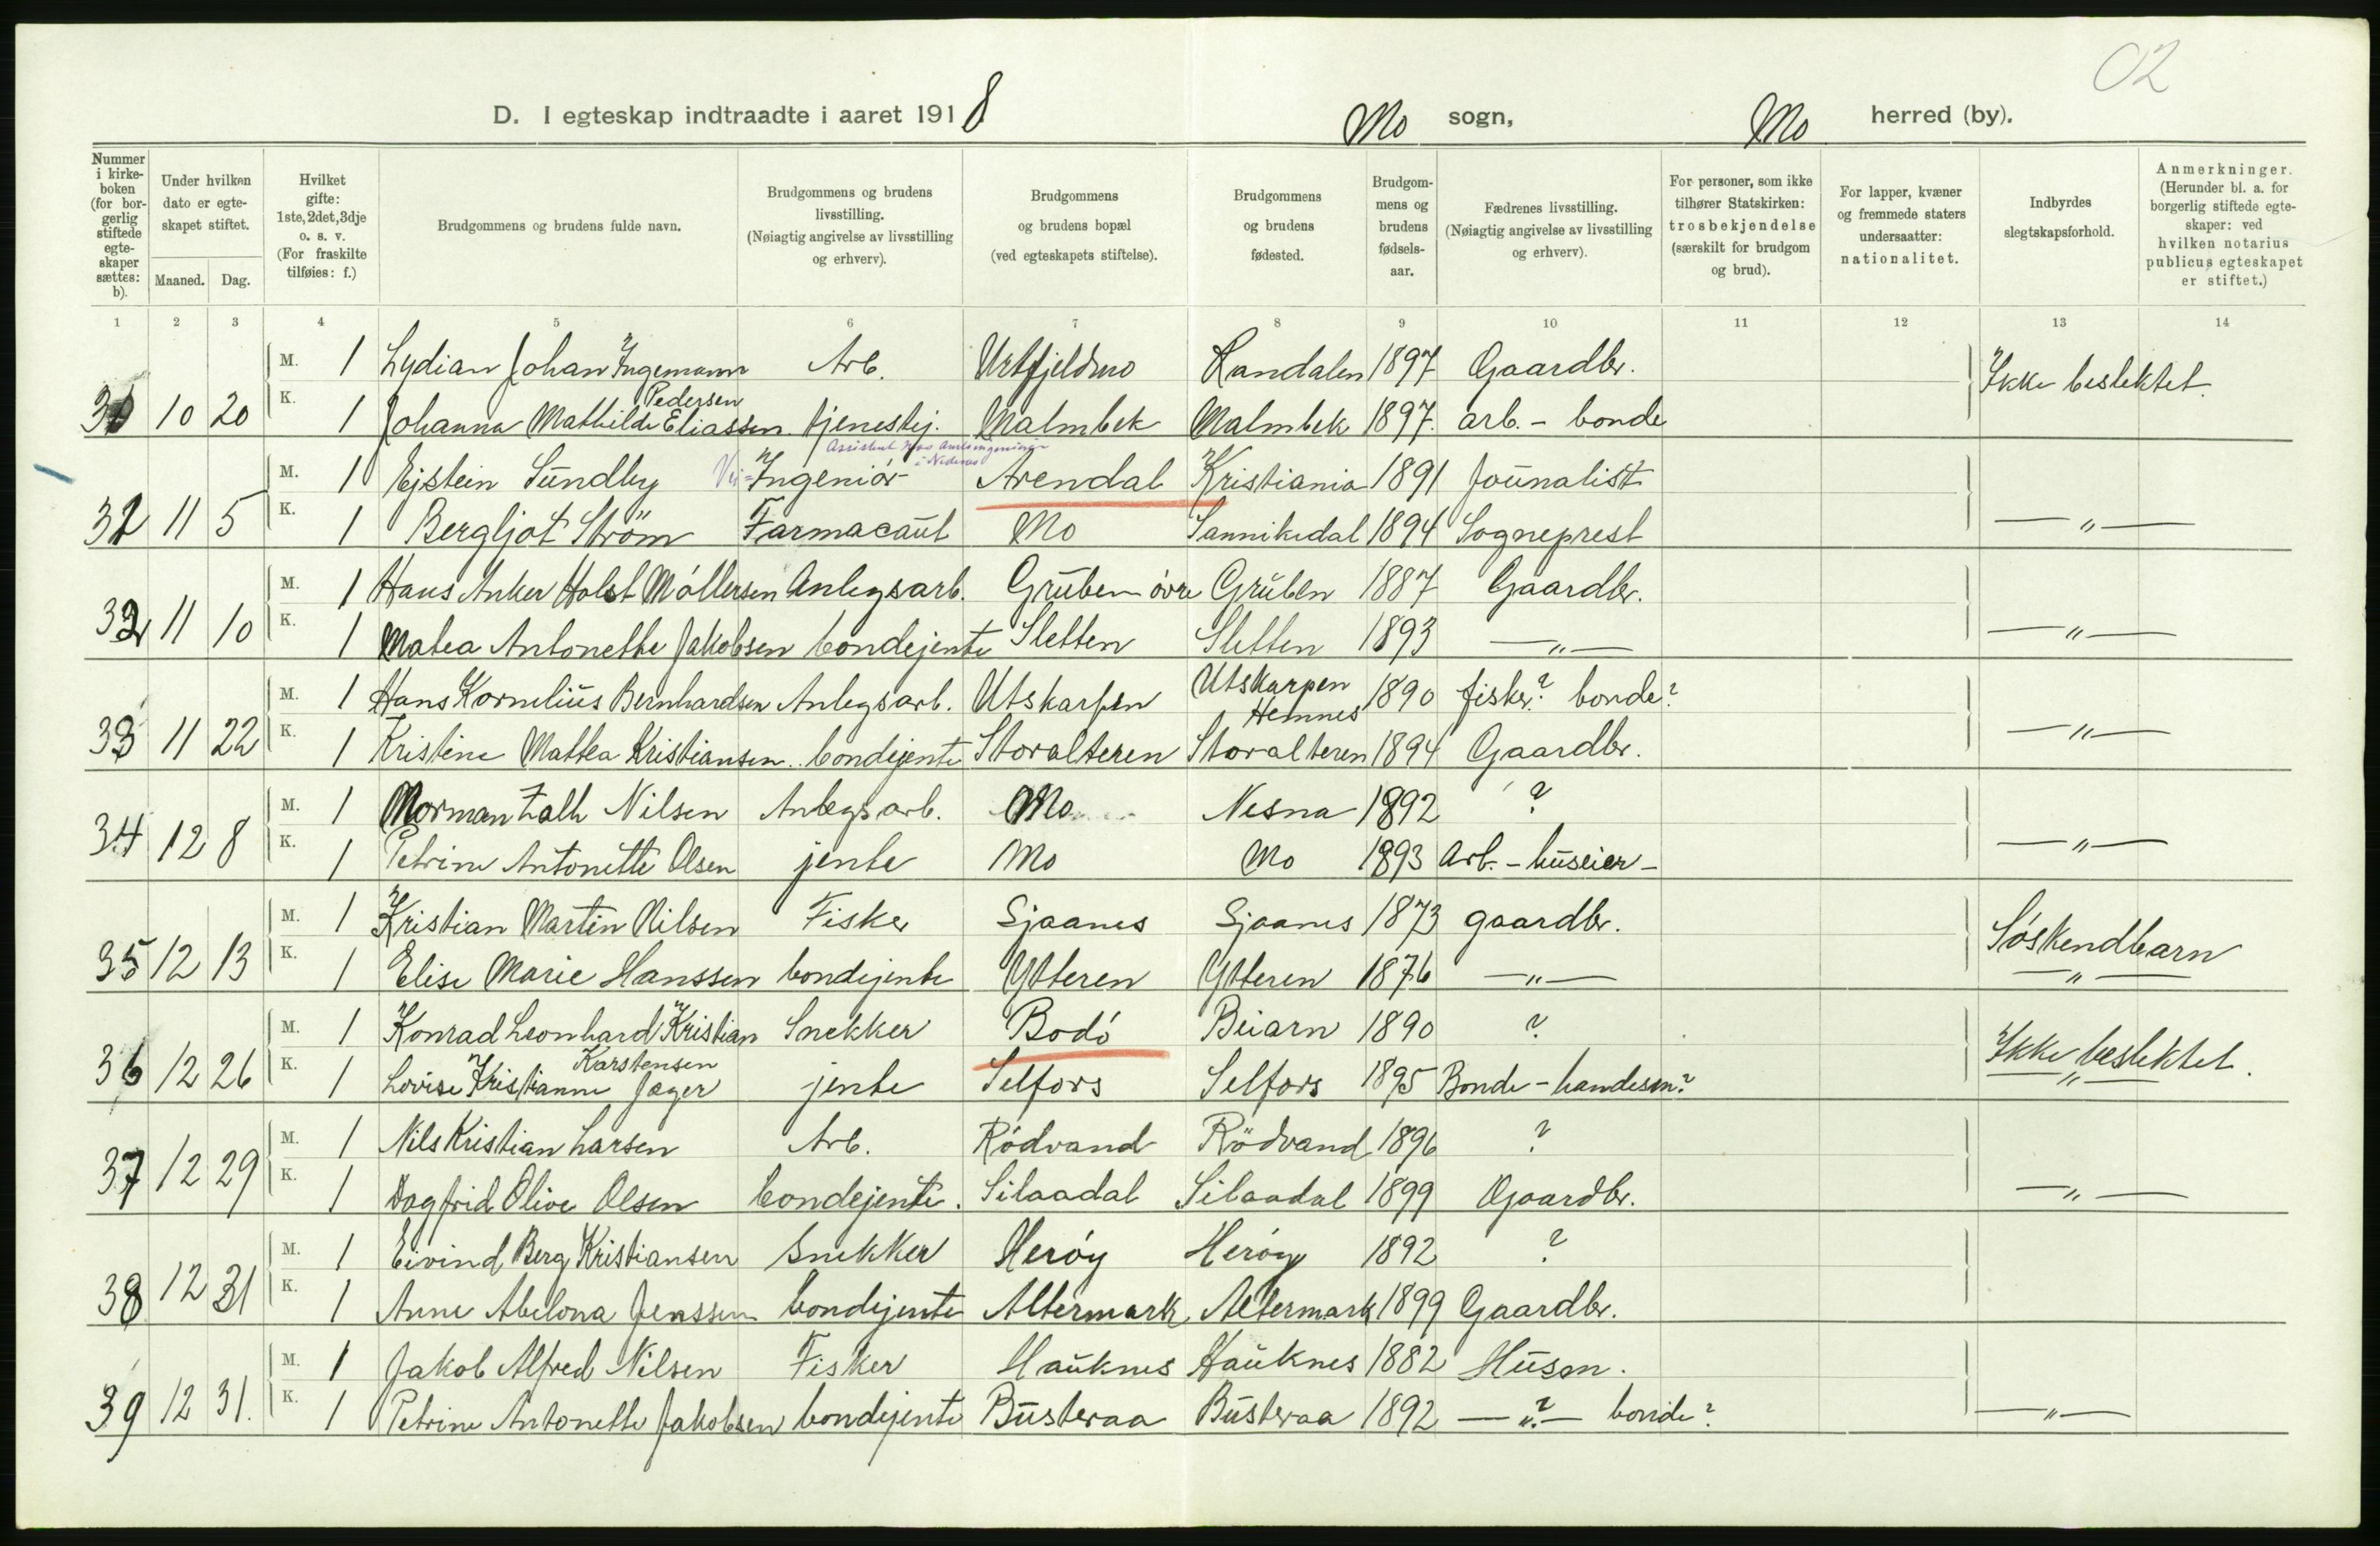 02
D. I egteskap indtraadte i aaret 1918 Mo sogn, Mo herred (by).
Nummer i kirkeboken (for borgerlig stiftede egteskaper sættes: b).
Under hvilken dato er egteskapet stiftet.
Maaned. Dag.
Hvilket gifte: 1ste, 2det, 3dje o. s. v. (For fraskilte tilføies: f.)
Brudgommens og brudens fulde navn.
Brudgommens og brudens livsstilling. (Nøiagtig angivelse av livsstilling og erhverv).
Brudgommens og brudens bopæl (ved egteskapets stiftelse).
Brudgommens og brudens fødested.
Brudgommens og brudens fødselsaar.
Fædrenes livsstilling. (Nøiagtig angivelse av livsstilling og erhverv).
For personer, som ikke tilhører Statskirken: trosbekjendelse (særskilt for brudgom og brud).
For lapper, kvæner og fremmede staters undersaatter: nationalitet.
Indbyrdes slegtskapsforhold.
Anmerkninger. (Herunder bl. a. for borgerlig stiftede egteskaper: ved hvilken notarius publicus egteskapet er stiftet.)
1 2 3 4 5 6 7 8 9 10 11 12 13 14
M. 1 Lydian Johan Ingemann Pedersen Arb. Urtfjeldmo Randalen 1897 Gaardbr.
10 20 K. 1 Johanna Mathilde Eliassen tjenestej. Malmbek Malmbek 1897. arb. - bonde Ikke beslektet.
Assistent hos Amtsingeniør i Nedenes
M. 1 Ejstein Sundby Vei-Ingeniör Arendal Kristiania 1891 Jounalist
11 5 K. 1 Bergljot Ström Farmacaut Mo Sannikedal 1894 Sogneprest —"—
M. 1 Hans Anker Holst Möllersen Anlegsarb. Gruben övre Gruben 1887 Gaardbr.
32 11 10 K. 1 Matea Antonette Jakobsen bondejente Sletten Sletten 1893 —"— —"—
M. 1 Hans Kornelius Bernhardsen Anlegsarb. Utskarpen Utskarpen Hemnes 1890 fisker? bonde?
33 11 22 K. 1 Kristine Mattea Kristiansen bondejente Storalteren Storalteren 1894 Gaardbr. —"—
M. 1 Norman Nilsen Anlegsarb. Mo Nesna 1892 ?
34 12 8 K. 1 Petrine Antonette Olsen jente Mo Mo 1893 Arb. - huseier - —"—
M. 1 Kristian Martin Nilsen Fisker Sjaanes Sjaanes 1873 gaardbr.
35 12 13 K. 1 Elise Marie Hanssen bondejente Ytteren Ytteren 1876 —"— Söskendbarn —"—
M. 1 Konrad Leonhard Kristian Karstensen Snekker Bodö Beiarn 1890 ?
36 12 26 K. 1 Lovise Kristianne Jager jente Selfors Selfors 1895 Bonde - handesm? Ikke beslektet. "
M. 1 Nils Kristian Larsen Arb. Rödvand Rödvand 1896 ?
37 12 29 K. 1 Dagfrid Olive Olsen bondejente. Silaadal Silaadal 1899 Gaardbr. —"—
M. 1 Eivind Berg Kristiansen Snekker Heröy Heröy 1892 ?
38 12 31 K. 1 Anne Abelona Jenssen bondejente Altermark Altermark 1899 Gaardbr.
M. 1 Jakob Alfred Nilsen Fisker Hauknes Hauknes 1882 Husm.
39 12 31. K. 1 Petrine Antonette Jakobsen bondejente Busteraa Busteraa 1892 —"?— bonde? —"—